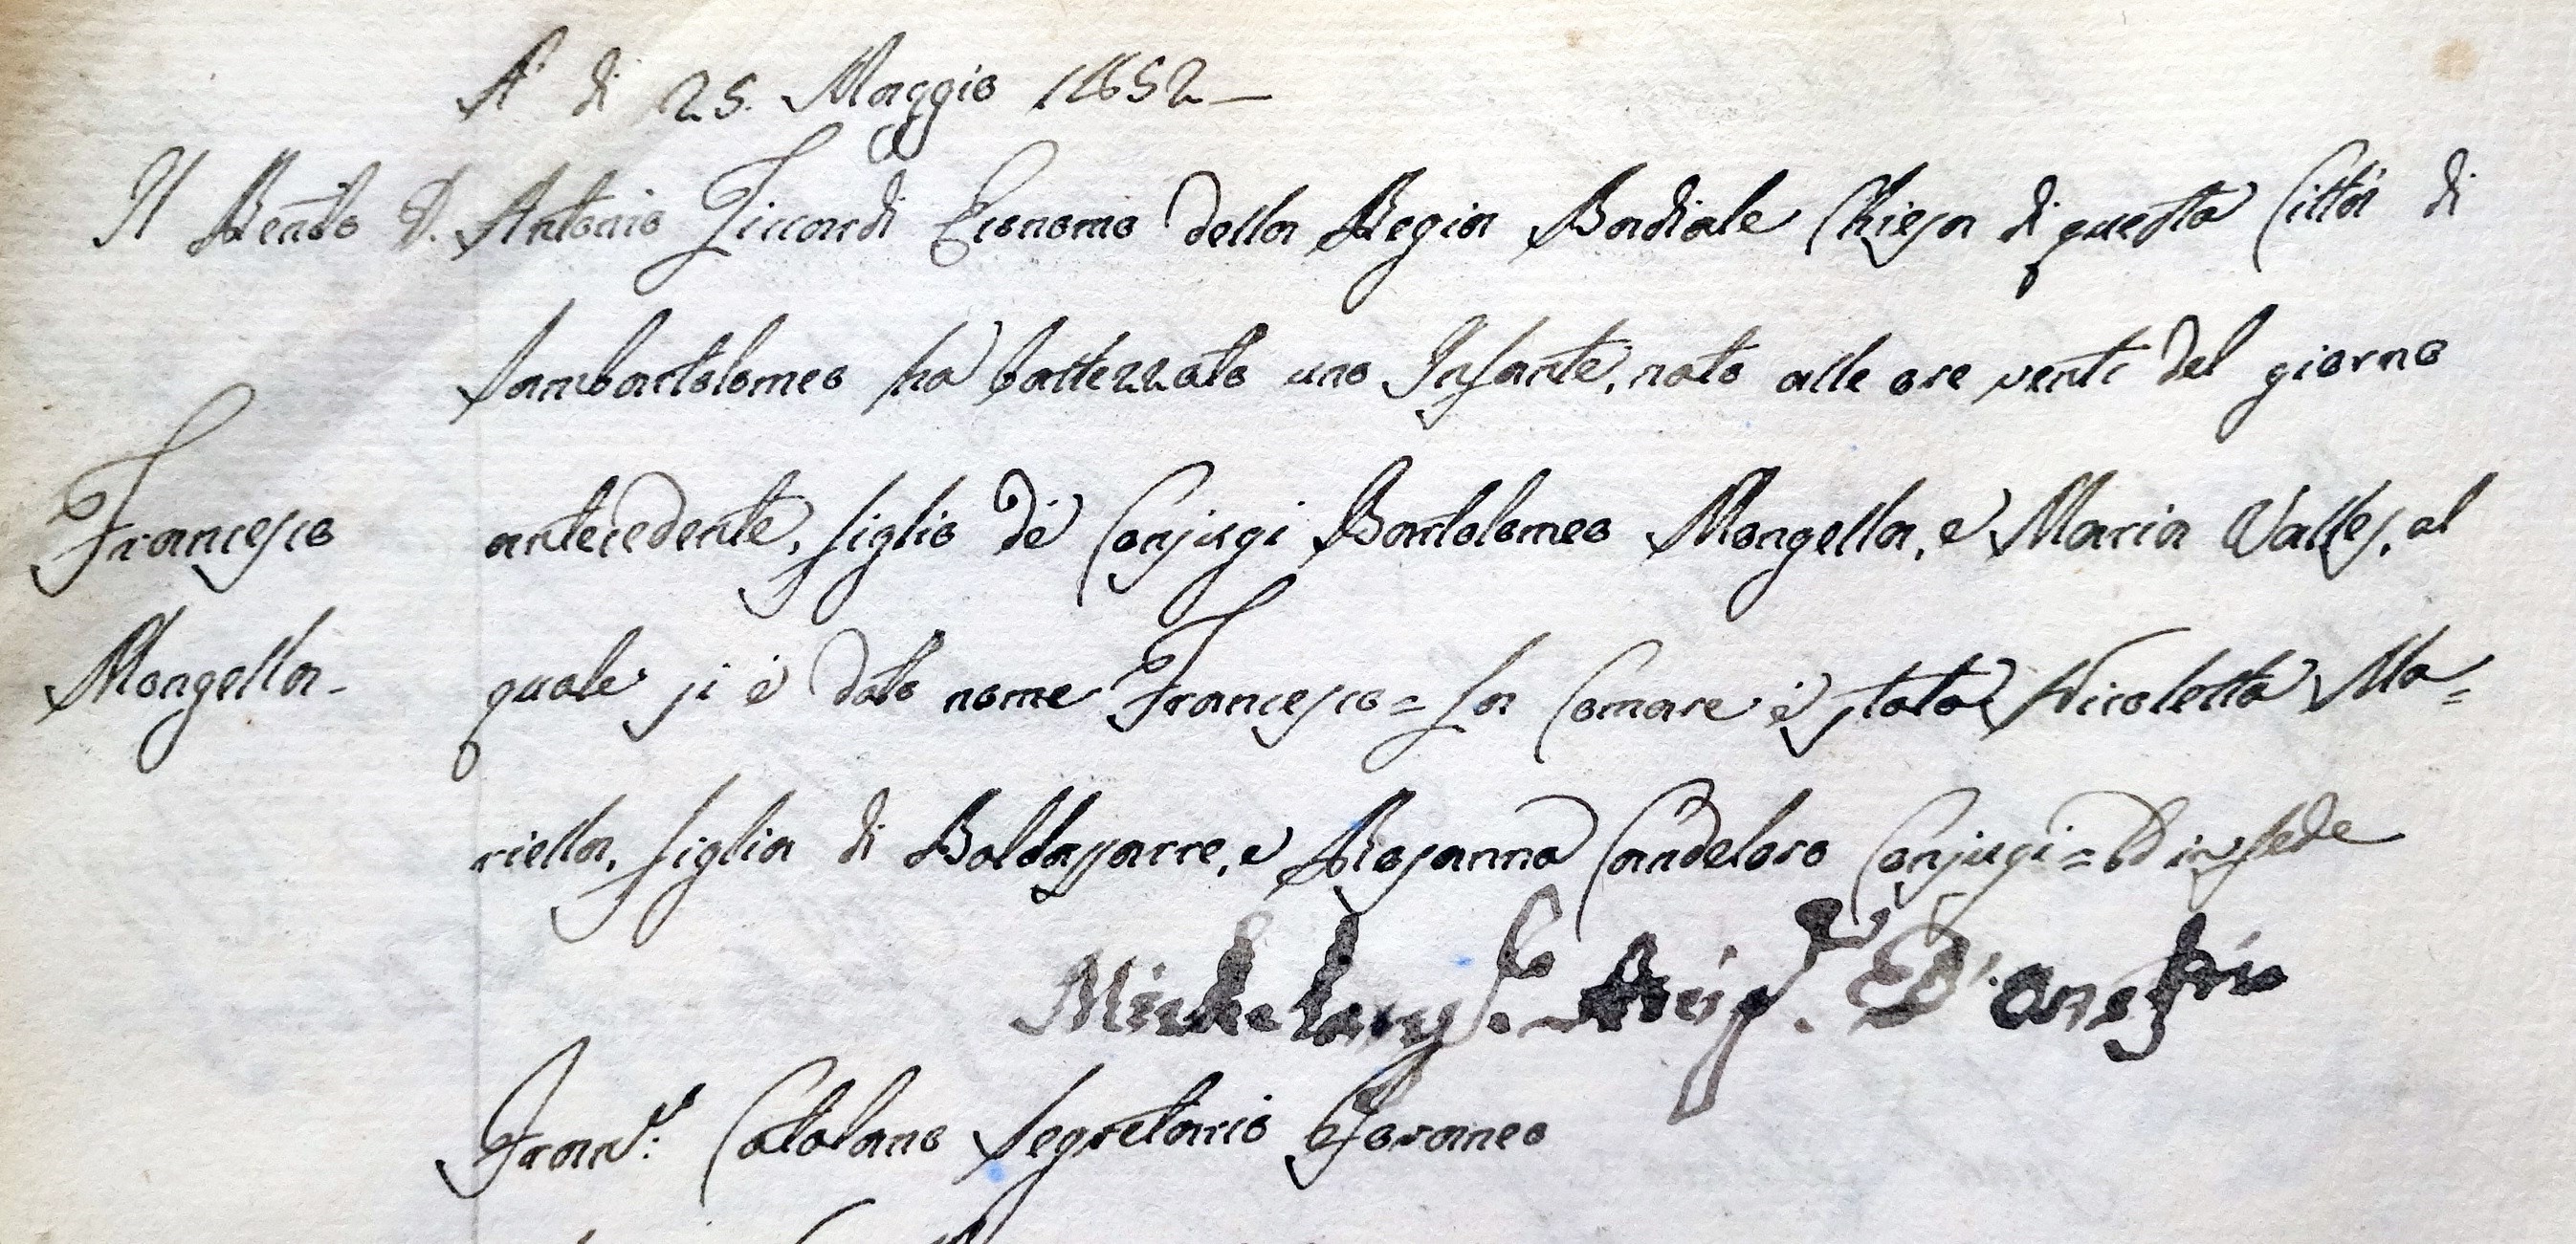 A' di 25. Maggio 1852 —
Il Rendo D. Antonio Ziccardi Economo della Regia Badiale Chiesa di questa Città di
Sambartolomeo ha battezzato uno Infante, nato alle ore venti del giorno
Francesco antecedente, figlio de' Conjugi Bartolomeo Mongella, e Maria Valles, al
Mongella - quale si è dato nome Francesco = La Comare è stata Nicoletta Ma=
riella, figlia di Baldassarre, e Rosanna Candeloro Conjugi = Ed in fede
Michelang.
Segretario Foraneo
Catalano